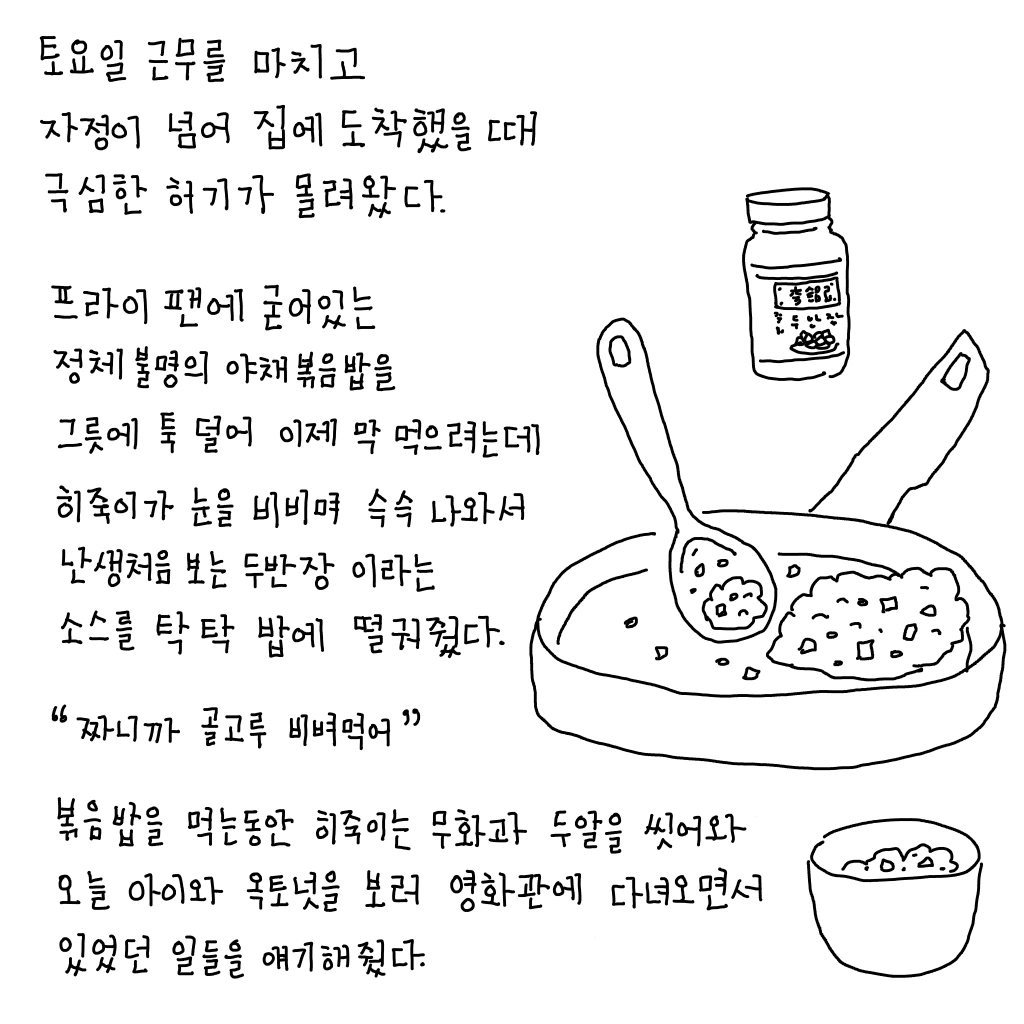 토요일 근무를 마치고
자정이 넘어 집에 도착했을 때
극심한 허기가 몰려왔다.
프라이 팬에 굳어있는
정체불명의 야채볶음밥을
그릇에 툭 덜어 이제 막 먹으려는데
히죽이가 눈을 비비며 슥슥 나와서
난생처음 보는 두반장 이라는
소스를 탁 탁 밥에 떨궈줬다.
“짜니까 골고루 비벼먹어”
볶음밥을 먹는동안 히죽이는 무화과 두알을 씻어와
오늘 아이와 옥토넛을 보러 영화관에 다녀오면서
있었던 일들을 얘기해줬다.
李錦記
두반장